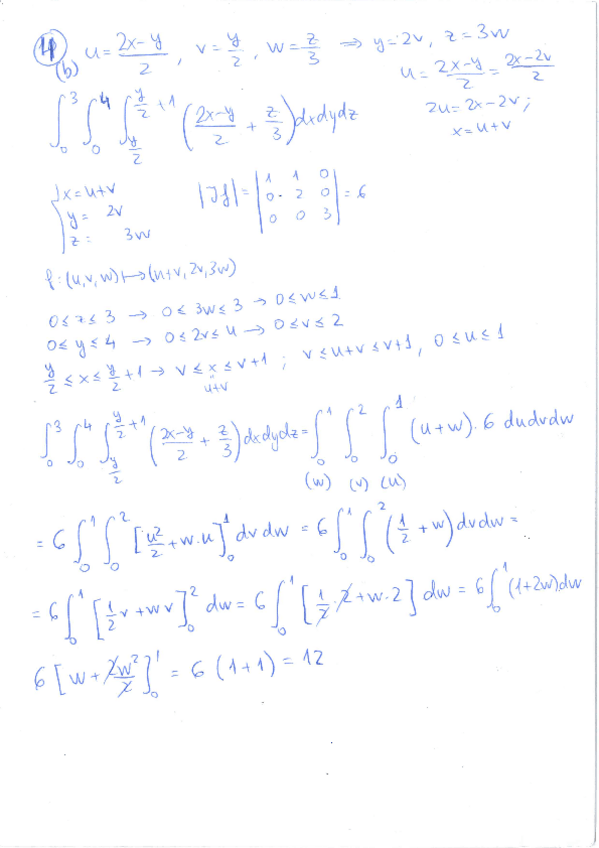 4
(b) u = (2x-y)/2 , v = y/2 , w = z/3 ⇒ y = 2v, z = 3w
u = (2x-y)/2 = (2x-2v)/2
2u = 2x-2v ;
x = u+v
∫₀³ ∫₀⁴ ∫_{y/2}^{y/2 +1} ( (2x-y)/2 + z/3 ) dxdydz
{ x = u+v
y = 2v
z = 3w
|Jf| = | 1 1 0
0 2 0
0 0 3 | = 6
f : (u,v,w) ↦ (u+v, 2v, 3w)
0 ≤ z ≤ 3 → 0 ≤ 3w ≤ 3 → 0 ≤ w ≤ 1
0 ≤ y ≤ 4 → 0 ≤ 2v ≤ 4 → 0 ≤ v ≤ 2
y/2 ≤ x ≤ y/2 + 1 → v ≤ x ≤ v+1 ; v ≤ u+v ≤ v+1, 0 ≤ u ≤ 1
=
u+v
∫₀³ ∫₀⁴ ∫_{y/2}^{y/2 +1} ( (2x-y)/2 + z/3 ) dxdydz = ∫₀¹ ∫₀² ∫₀¹ (u+w) · 6 dudvdw
(w) (v) (u)
= 6 ∫₀¹ ∫₀² [ u²/2 + w·u ]₀¹ dv dw = 6 ∫₀¹ ∫₀² ( 1/2 + w ) dv dw =
= 6 ∫₀¹ [ 1/2 v + wv ]₀² dw = 6 ∫₀¹ [ 1/2 · 2 + w·2 ] dw = 6 ∫₀¹ (1+2w) dw
6 [ w + 2w²/2 ]₀¹ = 6 (1+1) = 12